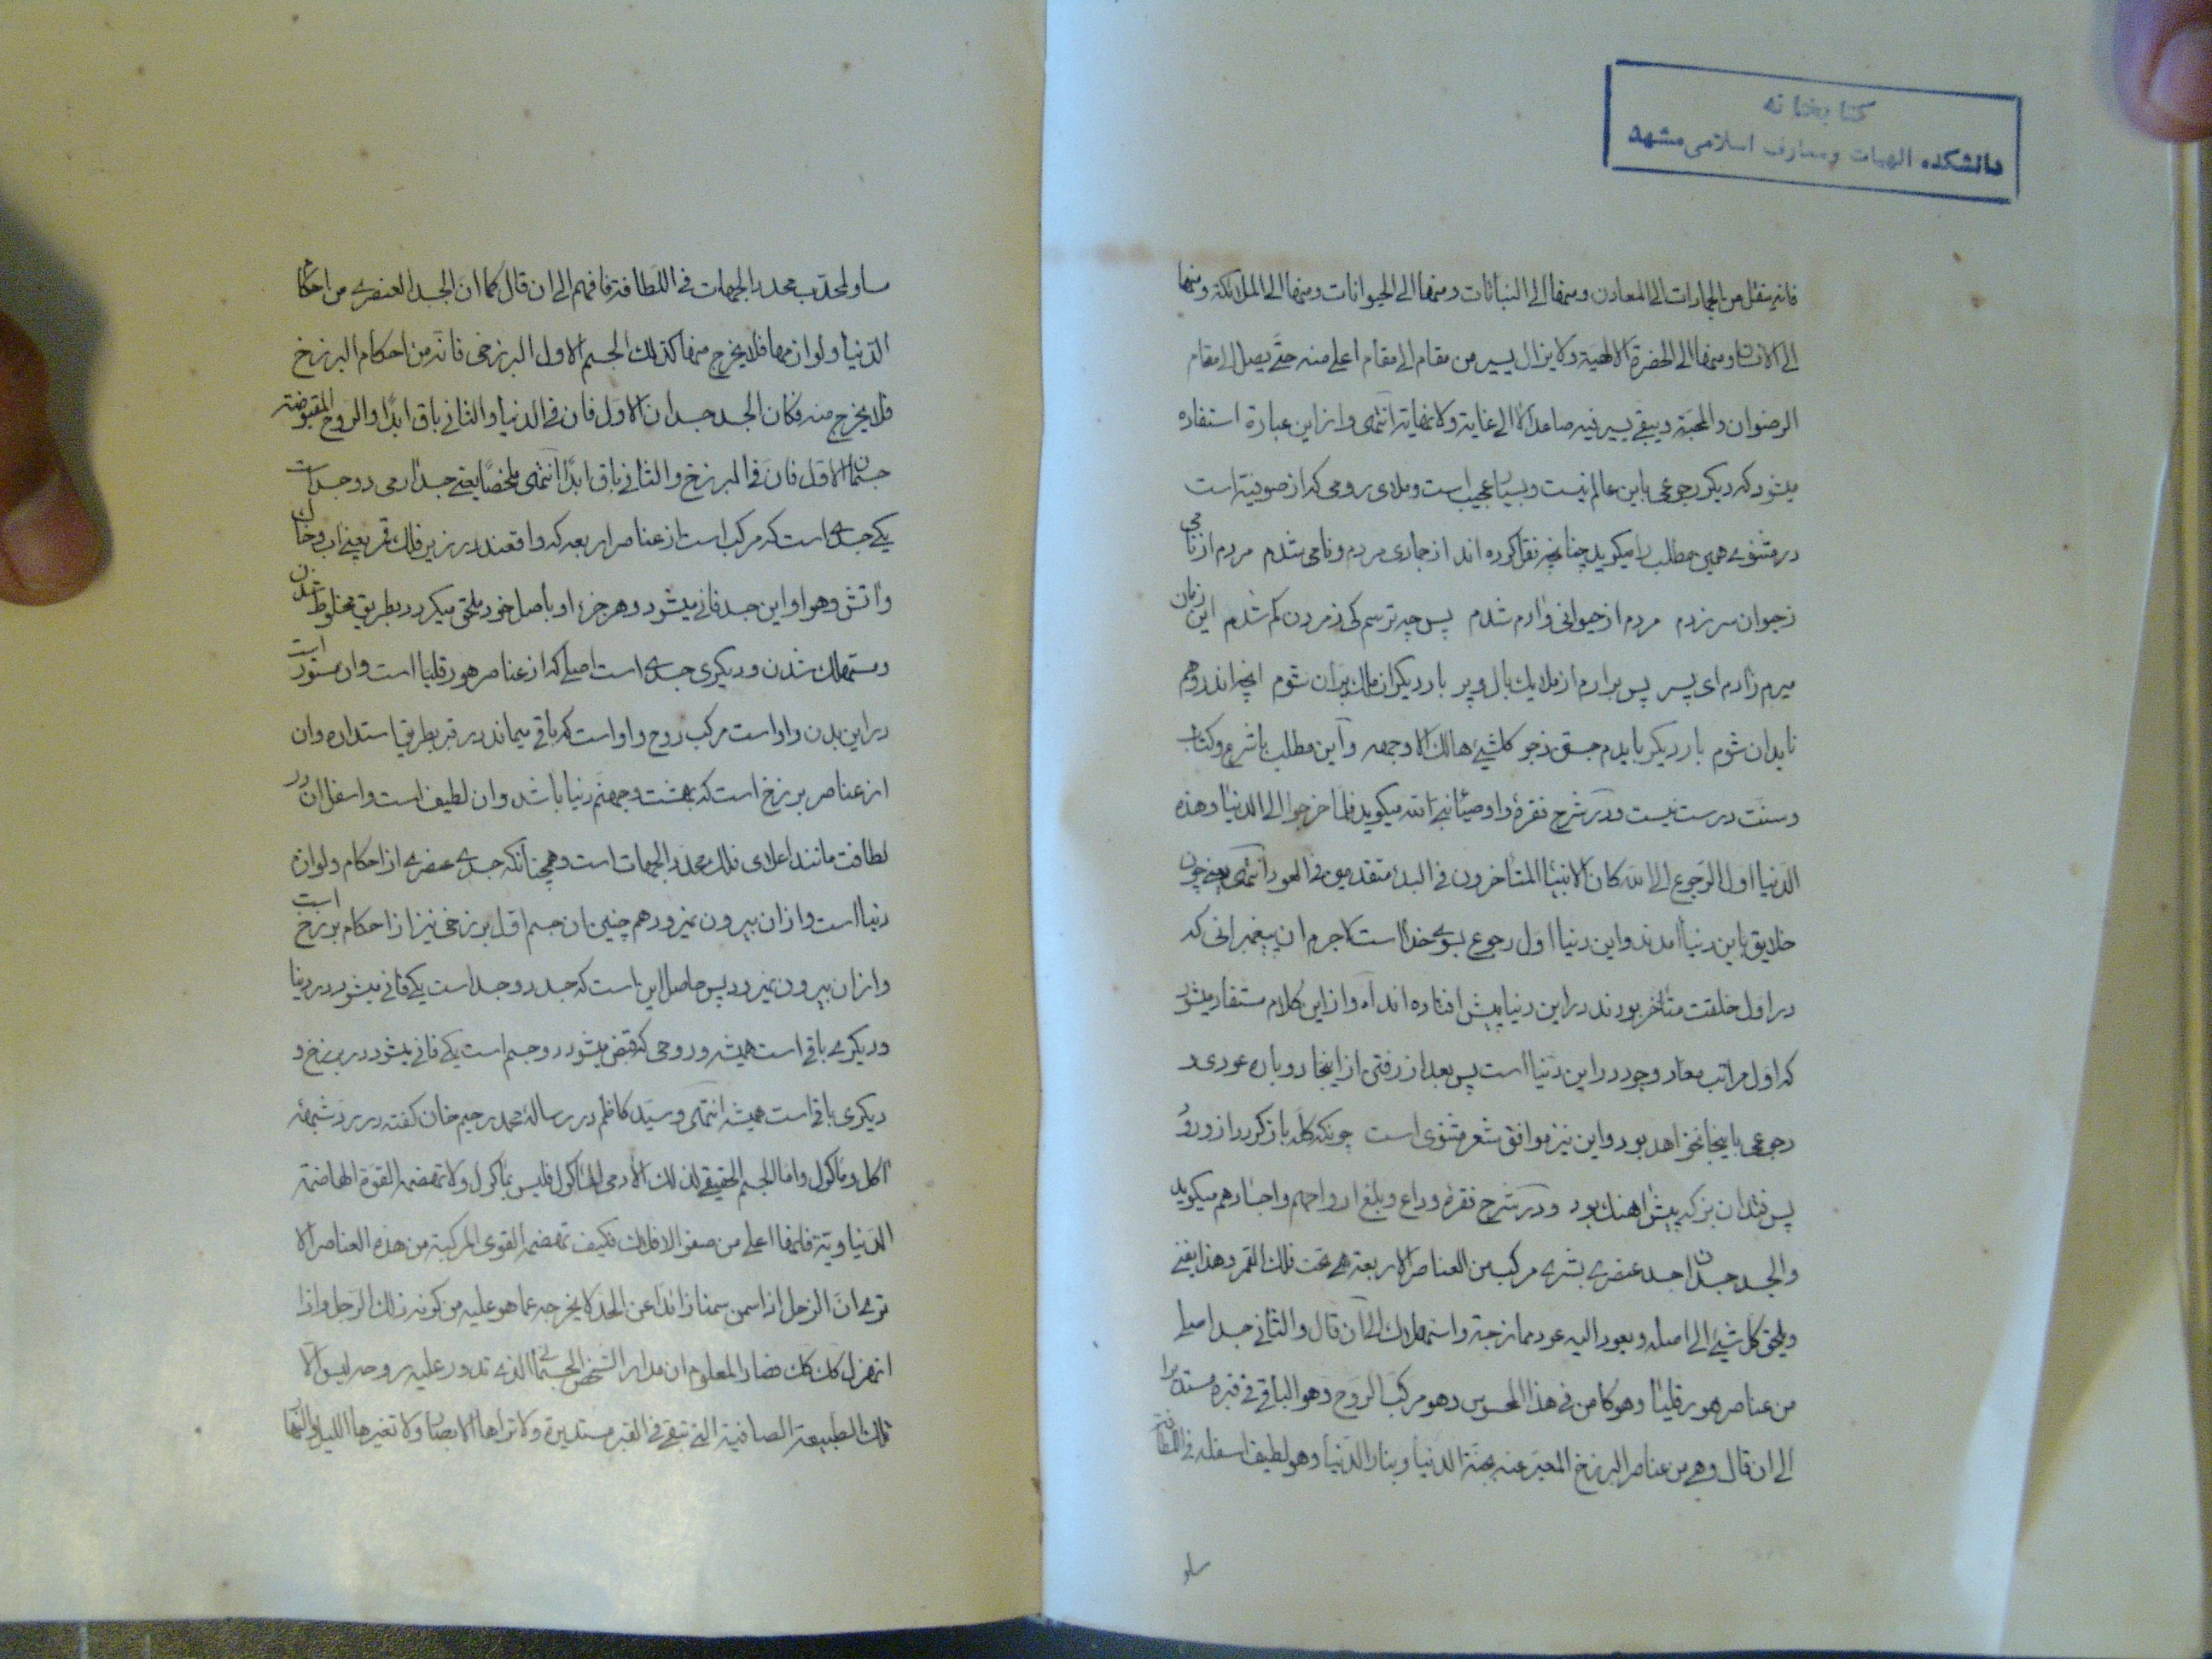 کتابخانه
دانشکده الهیات ومعارف اسلامی مشهد
فانه ینتقل من الجمادات الی المعادن ومنها الی النباتات ومنها الی الحیوانات ومنها الی الملائکة ومنها
الی الانسان ومنها الی الحضرة الالهیة ولا یزال یسیر من مقام الی مقام اعلی منه حتی یصل الی مقام
الرضوان والمحبة ویبقی یسیر فیه صاعدا لا الی غایة ولا نهایة انتهی وازاین عبارة استفاده
میشود که دیگر رجوعی باین عالم نیست وبسیار عجیب است وملای رومی که از صوفیه است
در مثنوی همین مطلب را میگوید چنانچه نقل کرده اند از جمادی مردم ونامی شدم مردم از نامی
زحیوان سر زدم مردم از حیوانی وآدم شدم پس چه ترسم کی ز مردن کم شدم این زمان
میرم زآدم ای پسر پس برارم از ملایک بال وپر بار دیگر از ملک پران شوم انچه اندر وهم
ناید ان شوم بار دیگر بایدم جستن زجو کلشیء هالک الا وجهه واین مطلب با شرع وکتاب
وسنت درست نیست ودر شرح فقرهٔ واوصیاء نبی الله میگوید فلما خرجوا الی الدنیا وهذه
الدنیا اول الرجوع الی الله کان الانبیاء المتاخرون فی البدء متقدمون فی العود انتهی یعنی چون
خلایق باین دنیا امدند واین دنیا اول رجوع بسوی خدا است لاجرم ان پیغمبرانی که
در اول خلقت متاخر بودند دراین دنیا پیش افتاده اند اه وازاین کلام مستفاد میشود
که اول مراتب معاد وجود دراین دنیا است پس بعد از رفتن از اینجا دوباره عودی و
رجوعی باینجا نخواهد بود واین نیز موافق شعر مثنوی است چونکه گله باز گردد از ورود
پس فتد ان بز که پیش اهنک بود ودر شرح فقرهٔ وداع وبلغ ارواحهم واجسادهم میگوید
والجسد جسدان جسد عنصری بشری مرکب من العناصر الاربعة هی تحت فلک القمر وهذا یفنی
ویلحق کل شیء الی اصله ویعود الیه عود ممازجة واستهلاک الی ان قال والثانی جسد اصلی
من عناصر هورقلیا وهو کامن فی هذا المحسوس وهو مرکب الروح وهو الباقی فی قبره مستدیرا
الی ان قال وهی من عناصر البرزخ المعبر عنه بجنة الدنیا وبنار الدنیا وهو لطیف اسفله فی اللطافة
ساو
ساو لمحدب محدد الجهات فی اللطافة فافهم الی ان قال کما ان الجسد العنصری من احکام
الدنیا ولوازمها فلا یخرج منها کذلک الجسم الاول البرزخی فانه من احکام البرزخ
فلا یخرج منه فکان الجسد جسدان الاول فان فی الدنیا والثانی باق ابدا والروح المقبوضة
جسمان الاول فان فی البرزخ والثانی باق ابدا انتهی ملخصا یعنی جسد ادمی دو جسد است
یکی جسدی است که مرکب است از عناصر اربعه که واقعند در زیر فلک قمر یعنی اب وخاک
واتش وهوا واین جسد فانی میشود وهر جزء او باصل خود ملحق میگردد بطریق مخلوط شدن
ومستهلک شدن ودیگری جسدی است اصلی که از عناصر هورقلیا است وان مستور است
دراین بدن واو است مرکب روح واو است که باقی میماند در قبر بطریق استداره وان
از عناصر برزخ است که بهشت وجهنم دنیا باشد وان لطیف است واسفل ان در
لطافت مانند اعلای فلک محدد الجهات است وهمچنانکه جسدی عنصری از احکام ولوازم
دنیا است وازان بیرون نمیرود همچنین ان جسم اول برزخی نیز از احکام برزخ است
وازان بیرون نمیرود پس حاصل این است که جسد دو جسد است یکی فانی میشود در دنیا
ودیگری باقی است همیشه وروحی که قبض میشود دو جسم است یکی فانی میشود در برزخ و
دیگری باقی است همیشه انتهی وسید کاظم در رسالهٔ محمد رحیم خان گفته در رد شبههٔ
اکل وماکول واما الجسم الحقیقی لذلک الادمی الماکول فلیس بماکول ولا تهضمه القوة الهاضمة
الدنیاویة فانها اعلی من صفو الافلاک فکیف تهضمه القوی المرکبة من هذه العناصر الا
تری ان الرجل اذا سمن سمنا زائدا عن الحد لا یخرجه عما هو علیه من کونه ذلک الرجل واذا
انهزل کذلک فصار المعلوم ان مدار الشخص الجسمانی الذی تدور علیه روحه لیس الا
تلک الطبیعة الصافیة التی تبقی فی القبر مستدیرة ولا تراها الابصار ولا تغیرها اللیل والنهار